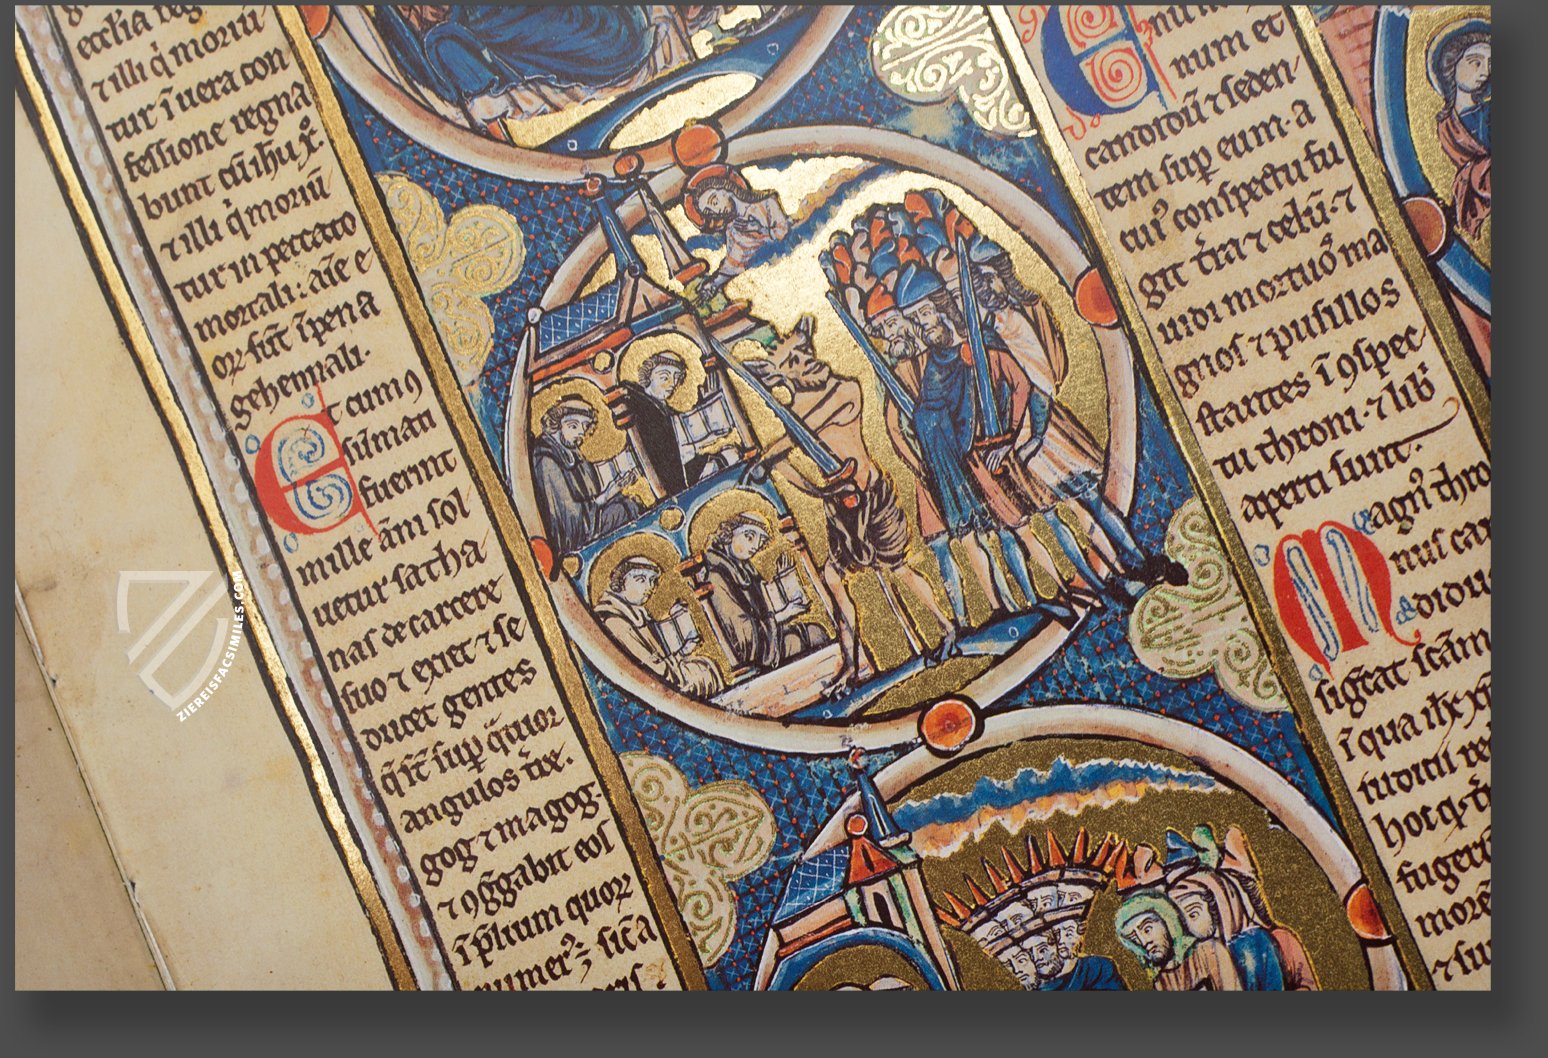 eccl'ia reg
⁊ illi q̇ moriū
tur ī uera con
fessione regna
bunt cū ihu xp̄.
⁊ illi q̇ moriū
tur in peccato
mortali: aīe e
oꝝ sūt ī pena
gehennali.
Et cum ꝯ
sūman
fuerint
mille ām sol
uetur satha
nas de carcere
suo ⁊ exiet ⁊ se
ducet gentes
q̄ sūt sup̄ q̄tuor
angulos tr̄e.
gog ⁊ magog
⁊ ꝯg̃gabit eos
ī p̄lium quoꝝ
numer᷒
num et
candidū ⁊ seden
tem sup̄ eum. a
cuiꝰ conspectu fu
git t̄ra ⁊ celū. ⁊
uidi mortuos ma
gnos ⁊ pusillos
stantes ī ꝯspec
tu throni. ⁊ lib̄
aperti sunt.
Magnꝰ thro
nus can
didu
sig̃cat s̄cam
ī qua ihc xp̄
iudicii re
hoc q
fuger
more
ZIEREISFACSIMILES.COM